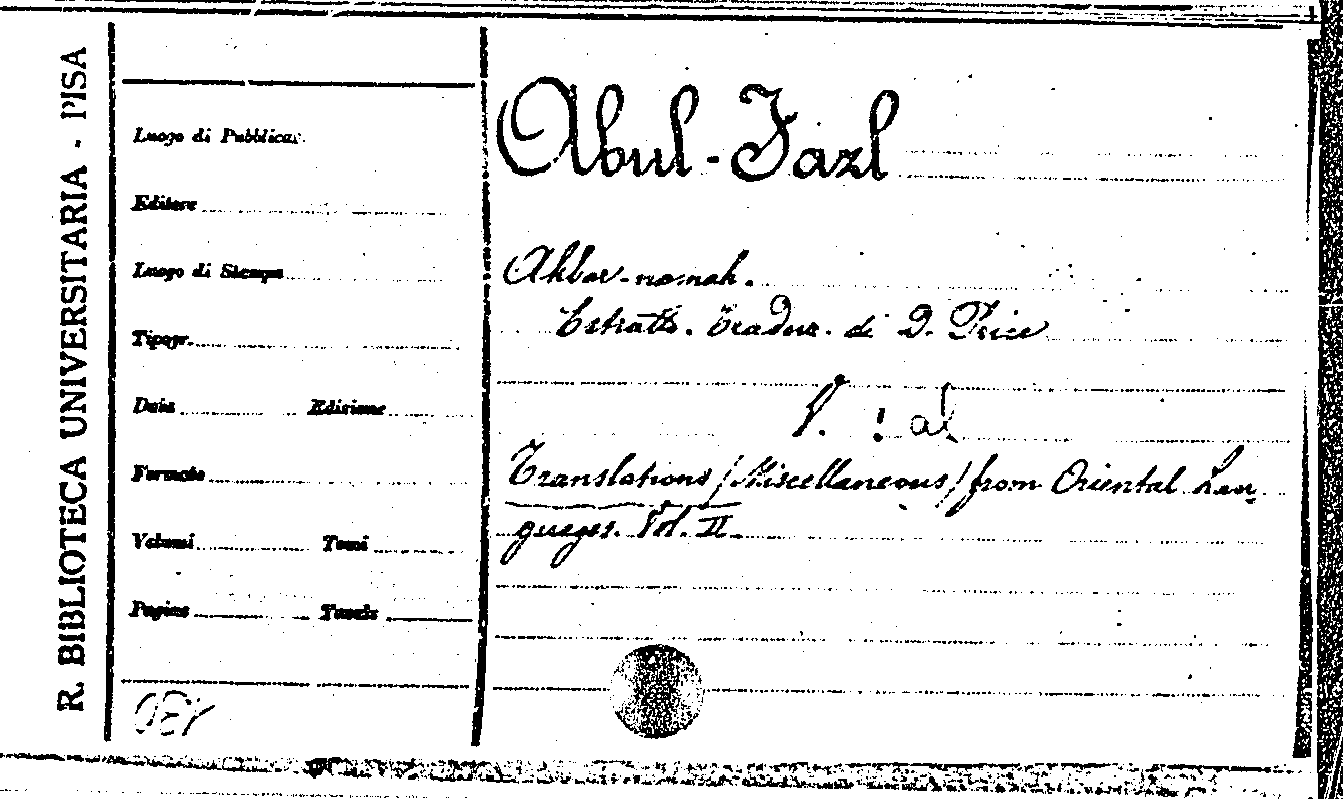 R. BIBLIOTECA UNIVERSITARIA - PISA
Luogo di Pubblicaz.
Editore
Luogo di Stampa
Tipogr.
Data Edizione
Formato
Volumi Tomi
Pagine Tavole
Abul-Fazl
Akbar-namah.
Estratto. Traduz. di D. Price
V. : al
Translations/Miscellaneous/from Oriental Lan-
guages. Vol. II.